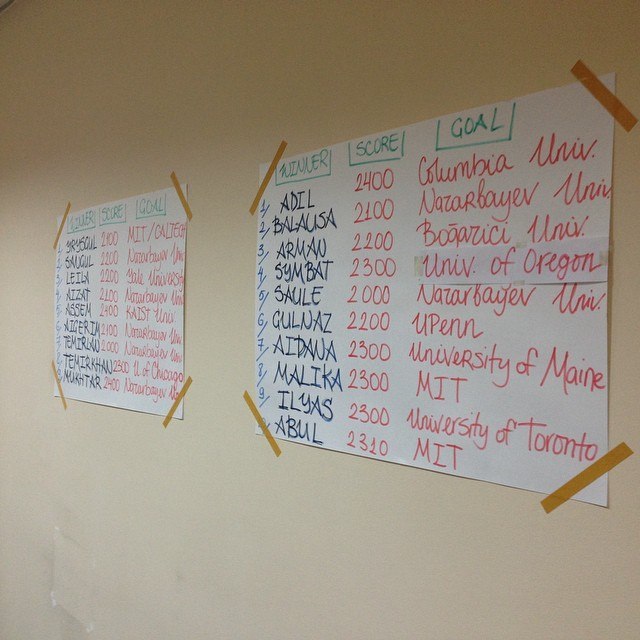 WINNER SCORE GOAL
1/ YRYSGUL 2400 MIT/CALTECH
2/ SAUGUL 2200 Nazarbayev Uni
3/ LEILA 2200 Yale University
4/ AIZAT 2100 Nazarbayev Uni
5/ ASSEM 2400 KAIST Univ.
6/ AIGERIM 2100 Nazarbayev Un
7/ TEMIRLAN 2000 Nazarbayev Un
8/ TEMIRKHAN 2300 U of Chicago
9/ MUKHTAR 2400 Nazarbayev Un
WINNER SCORE GOAL
1/ ADIL 2400 Columbia Univ.
2/ BALAUSA 2100 Nazarbayev Univ.
3/ ARMAN 2200 Boğaziçi Univ.
4/ SYMBAT 2300 Univ. of Oregon
5/ SAULE 2000 Nazarbayev Univ.
6/ GULNAZ 2200 UPenn
7/ AIDANA 2300 University of Maine
8/ MALIKA 2300 MIT
9/ ILYAS 2300 University of Toronto
ABUL 2310 MIT